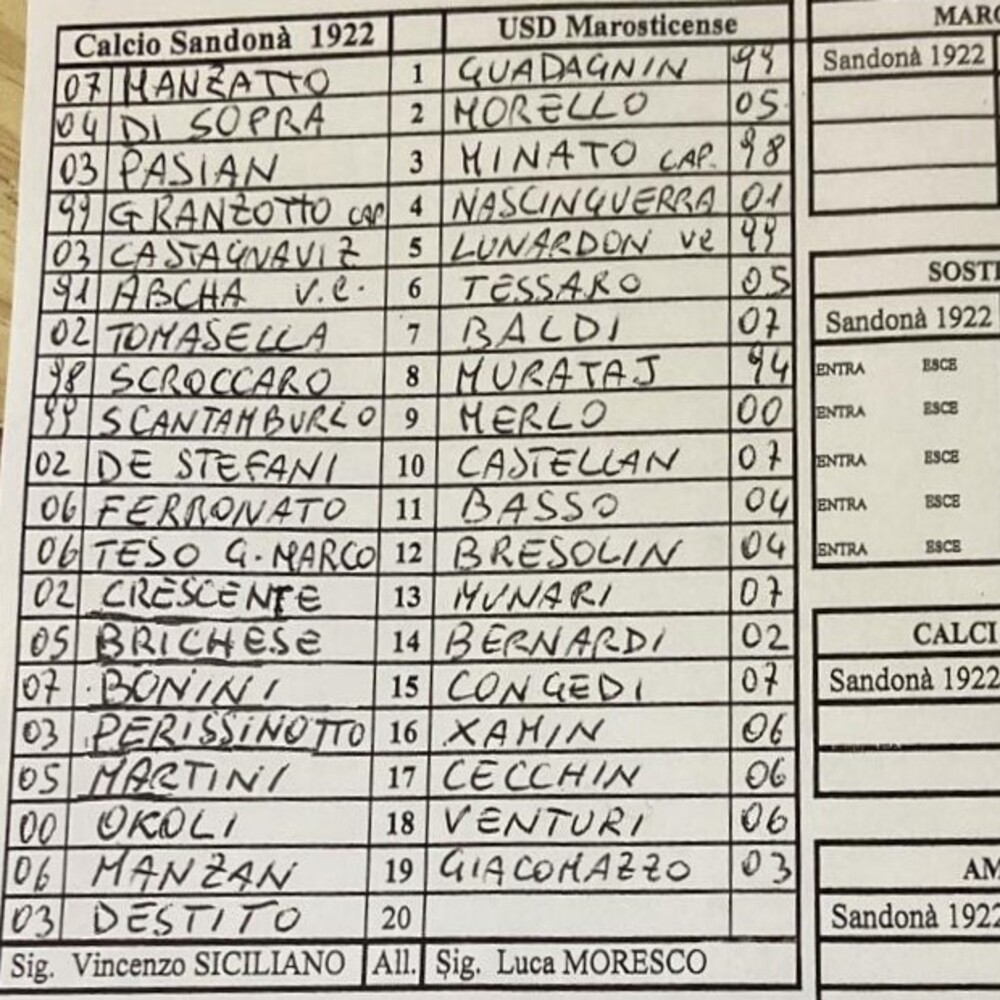 Calcio Sandonà 1922 USD Marosticense
07 MANZATTO 1 GUADAGNIN 99
04 DI SOPRA 2 MORELLO 05
03 PASIAN 3 MINATO CAP. 98
99 GRANZOTTO CAP 4 NASCINGUERRA 01
03 CASTAGNAVIZ 5 LUNARDON VC 99
91 ABCHA V.C. 6 TESSARO 05
02 TOMASELLA 7 BALDI 07
98 SCROCCARO 8 MURATAJ 94
99 SCANTAMBURLO 9 MERLO 00
02 DE STEFANI 10 CASTELLAN 07
06 FERRONATO 11 BASSO 04
06 TESO G. MARCO 12 BRESOLIN 04
02 CRESCENTE 13 MUNARI 07
05 BRICHESE 14 BERNARDI 02
07 BONINI 15 CONGEDI 07
03 PERISSINOTTO 16 XAMIN 06
05 MARTINI 17 CECCHIN 06
00 OKOLI 18 VENTURI 06
06 MANZAN 19 GIACOMAZZO 03
03 DESTITO 20
Sig. Vincenzo SICILIANO All. Sig. Luca MORESCO
MARC
Sandonà 1922
SOSTI
Sandonà 1922
ENTRA ESCE
ENTRA ESCE
ENTRA ESCE
ENTRA ESCE
ENTRA ESCE
CALCI
Sandonà 1922
AM
Sandonà 1922